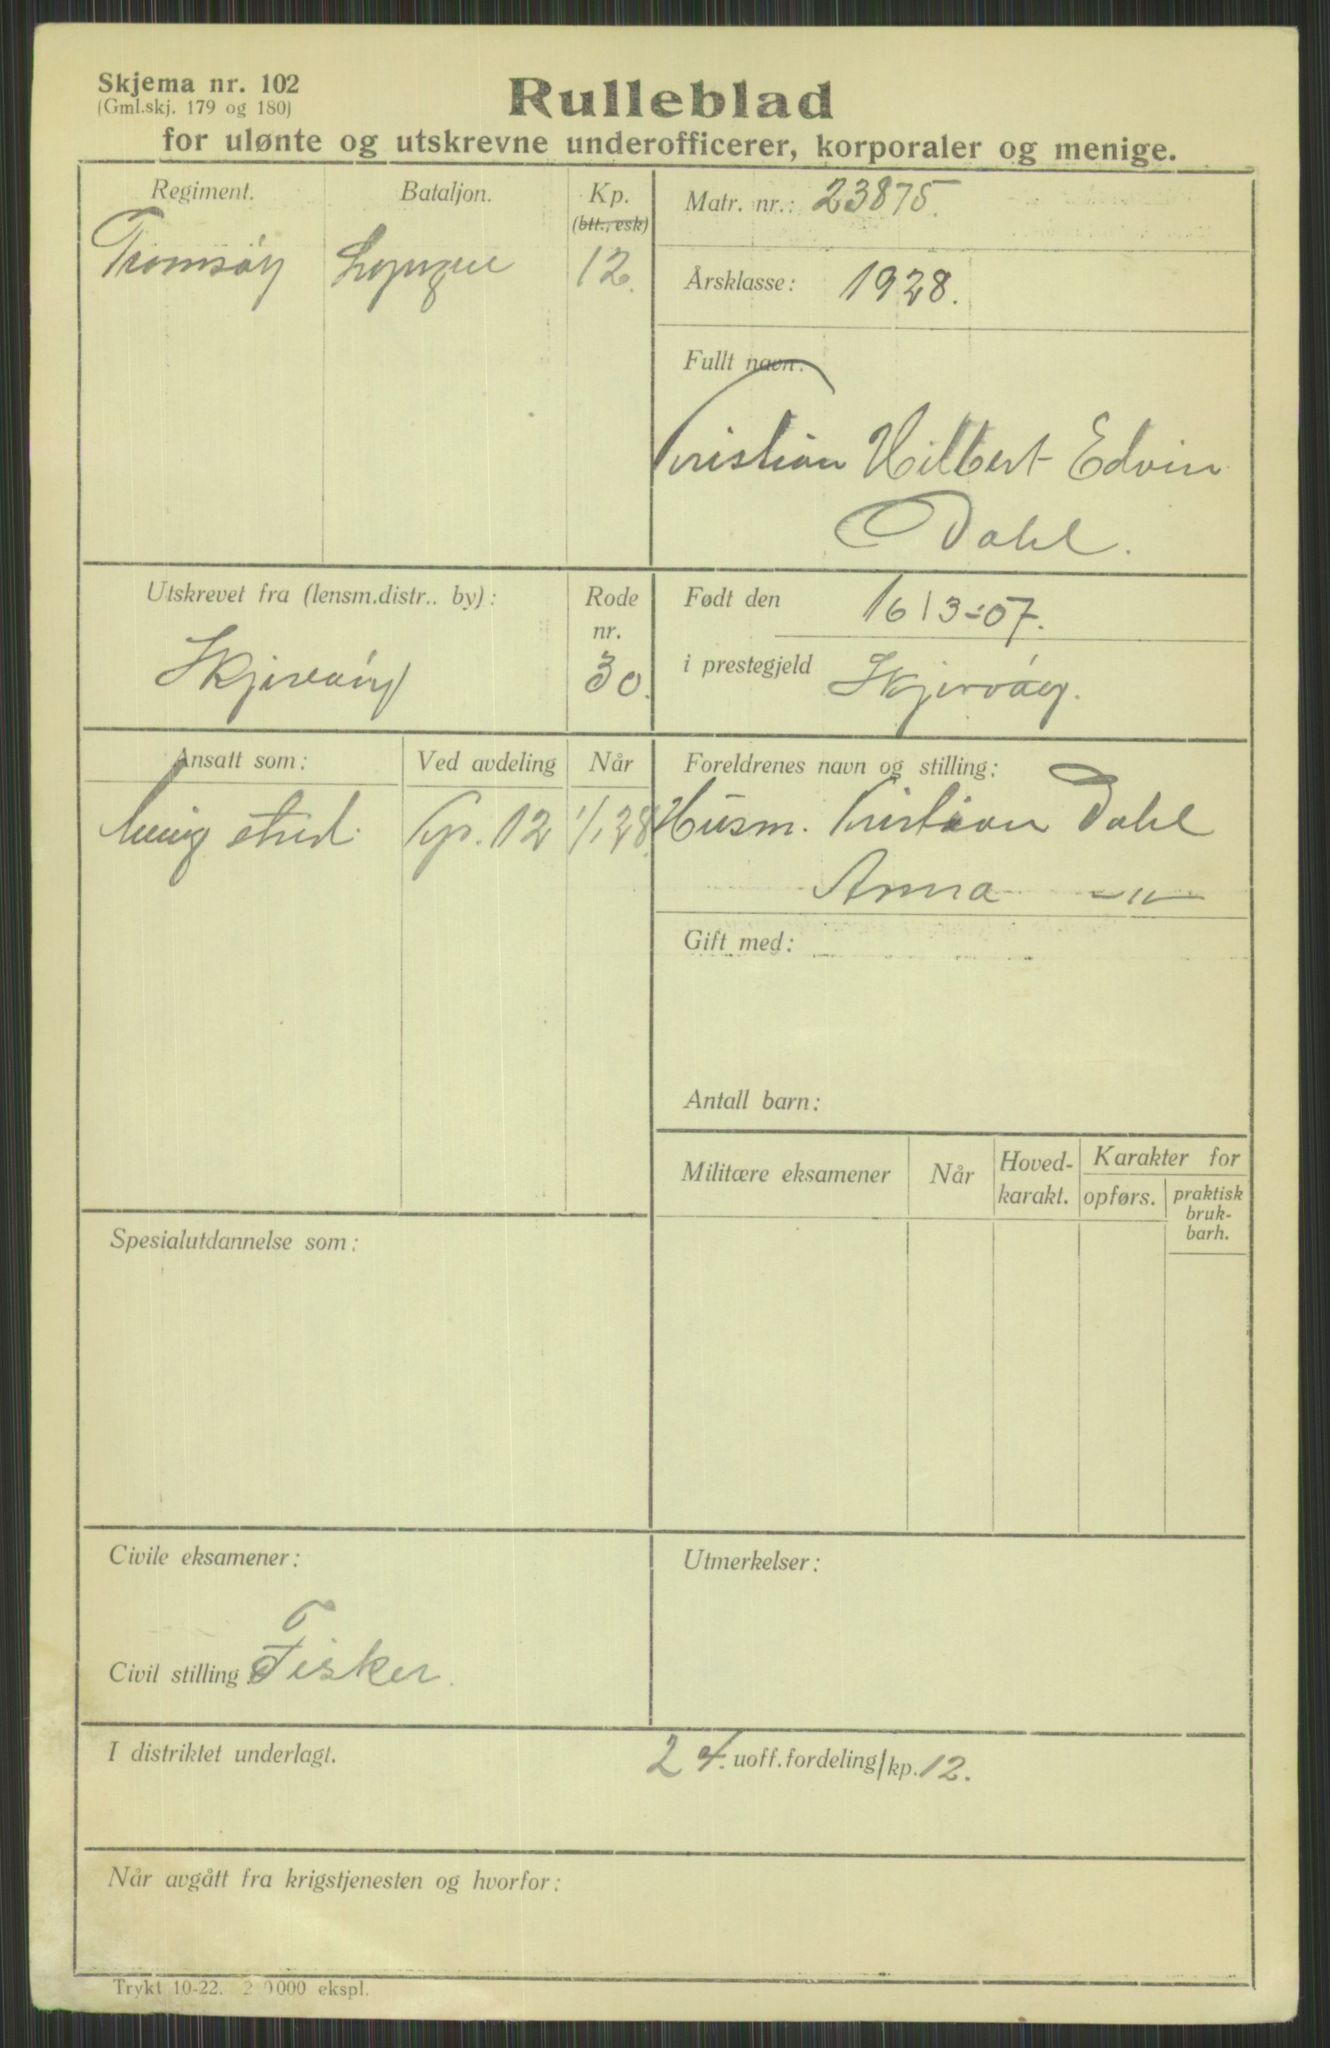 Skjema nr. 102
(Gml.skj. 179 og 180)
Rulleblad
for ulønte og utskrevne underofficerer, korporaler og menige.
Regiment. Bataljon. Kp.
(btt., esk)
Tromsøy Lyngen 12.
Matr. nr.: 23875.
Årsklasse: 1928.
Fullt navn:
Kristian Hilbert Edvin
Dahl.
Utskrevet fra (lensm.distr.. by): Rode
nr.
Skjervøy 30.
Født den 16/3-07.
i prestegjeld Skjervøy.
Ansatt som: Ved avdeling Når
Menig strid. Kp. 12 1/1 28.
Foreldrenes navn og stilling:
Husm. Kristian Dahl
Anna —"—
Gift med:
Antall barn:
Militære eksamener Når Hoved-
karakt. Karakter for
opførs. praktisk
bruk-
barh.
Spesialutdannelse som:
Civile eksamener:
Civil stilling Fisker.
Utmerkelser:
I distriktet underlagt. 24. uoff.fordeling/kp. 12.
Når avgått fra krigstjenesten og hvorfor:
Trykt 10-22. 2 0000 ekspl.